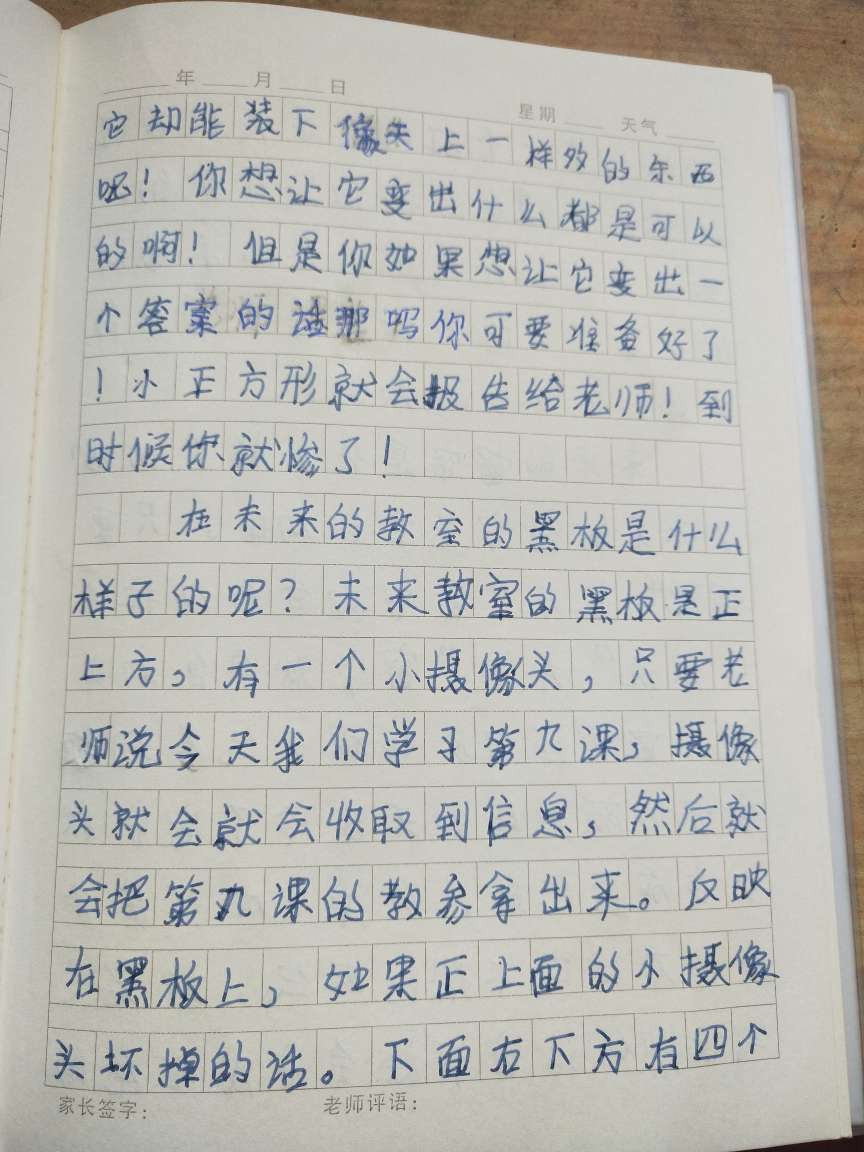 年 月 日 星期 天气
它却能装下像头上一样多的东西
呢！你想让它变出什么都是可以
的啊！但是你如果想让它变出一
个答案的话那吗你可要准备好了
！小正方形就会报告给老师！到
时候你就惨了！
在未来的教室的黑板是什么
样子的呢？未来教室的黑板是正
上方，有一个小摄像头，只要老
师说今天我们学习第九课，摄像
头就会就会收取到信息，然后就
会把第九课的教参拿出来。反映
在黑板上，如果正上面的小摄像
头坏掉的话。下面右下方有四个
家长签字： 老师评语：